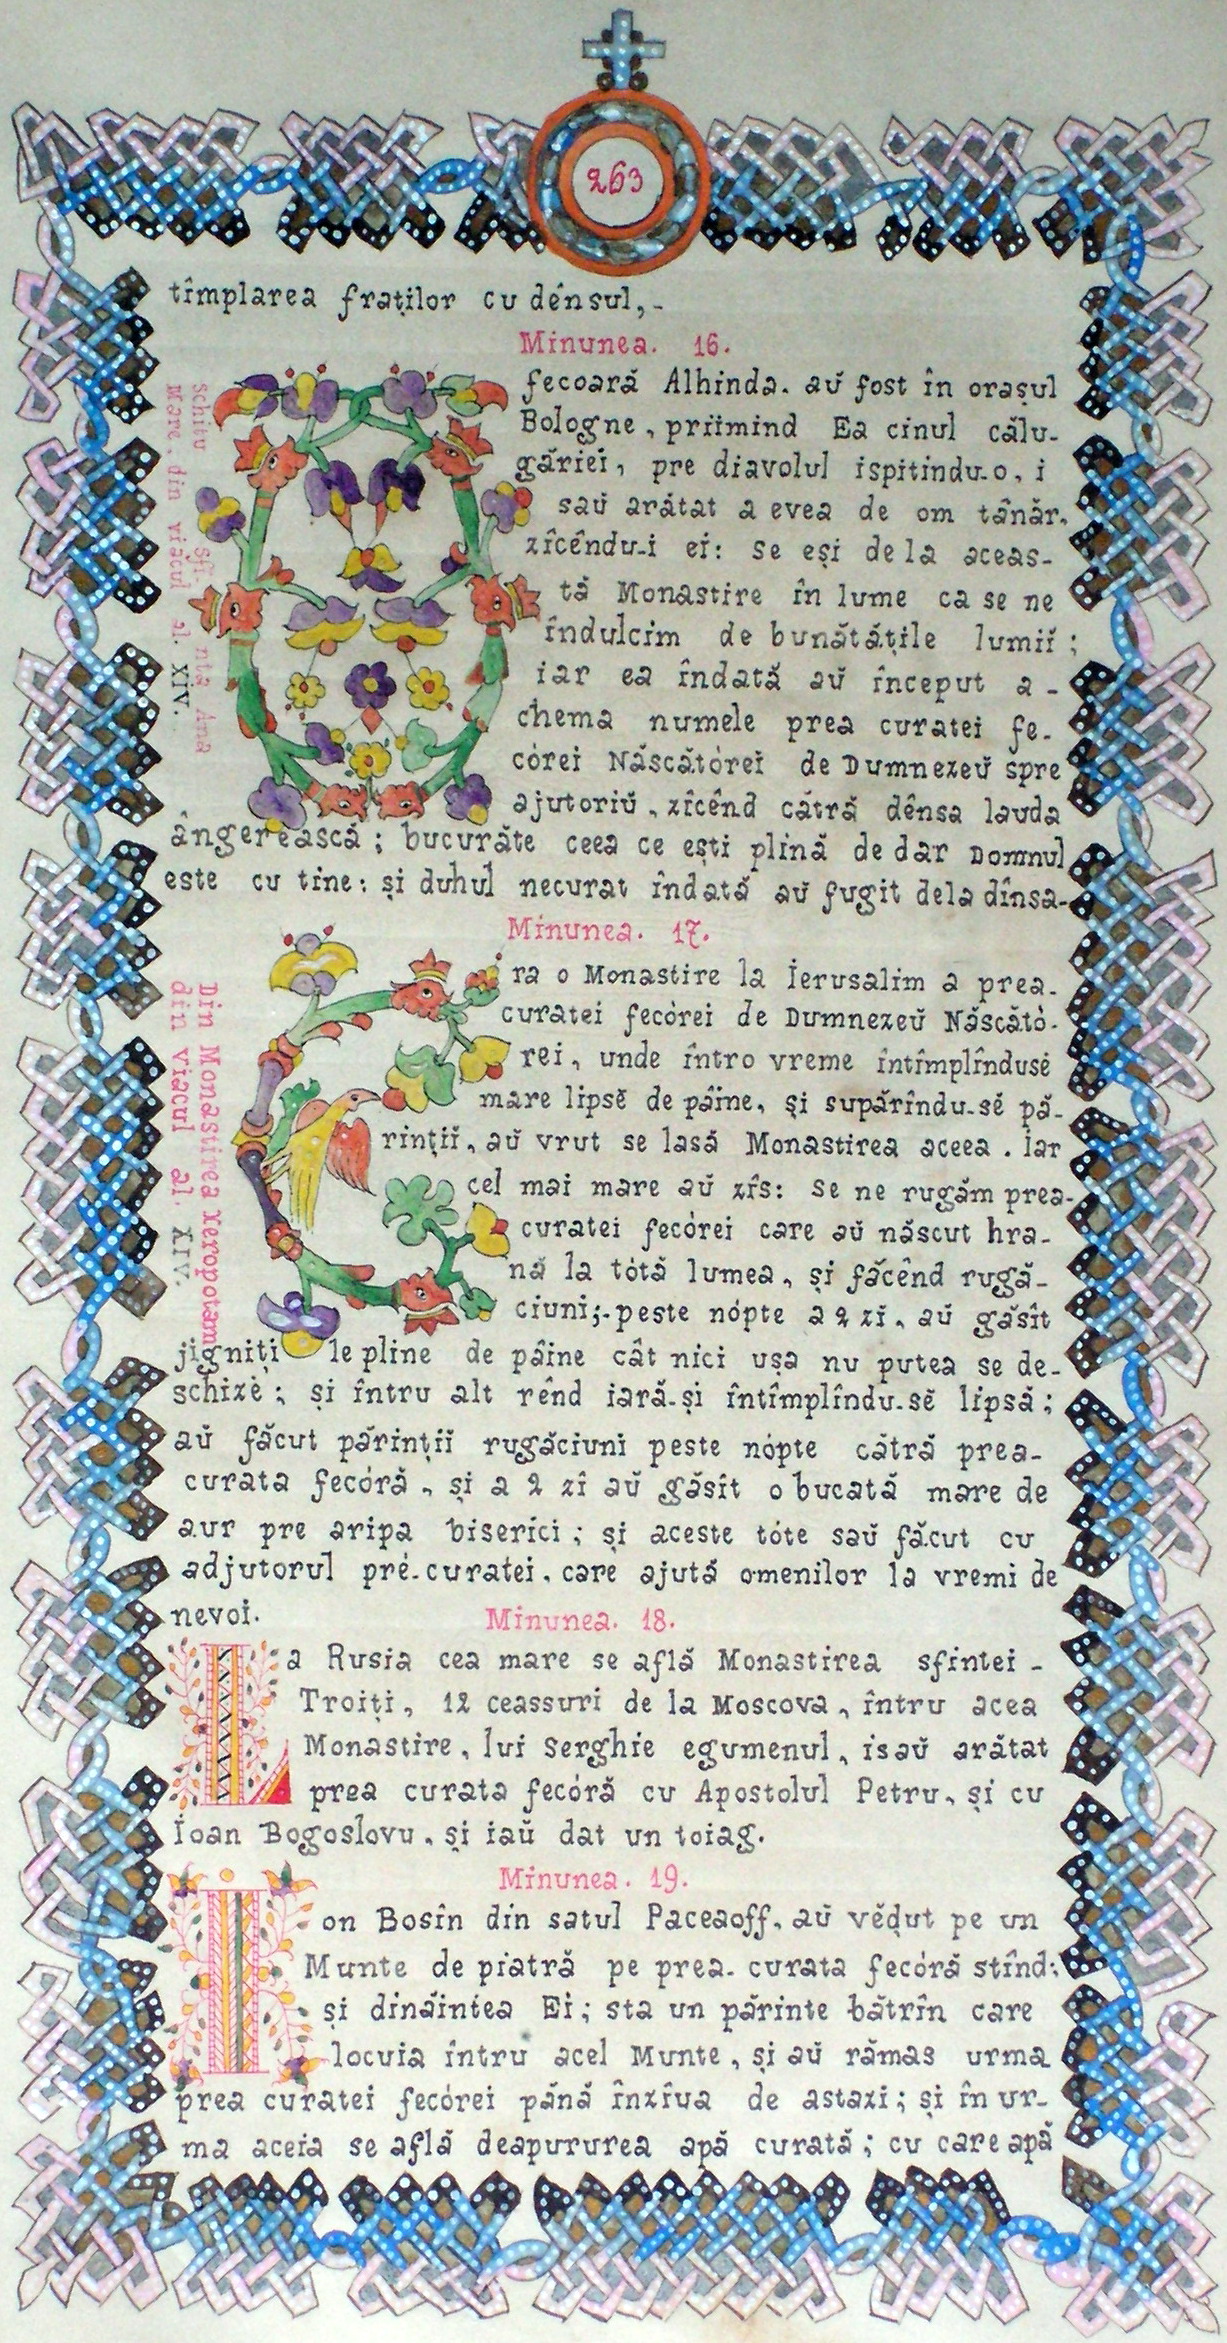 263
tîmplarea fraților cu dênsul,-
Minunea. 16.
fecoară Alhinda. aŭ fost în orașul
Bologne, priimind Ea cinul călu-
găriei, pre diavolul ispitindu-o, i
saŭ arătat a evea de om tânăr,
zîcêndu-i ei: se eși de la aceas-
tă Monastire în lume ca se ne
îndulcim de bunătățile lumiĭ;
iar ea îndată aŭ început a-
chema numele prea curatei fe-
córei Născătórei de Dumnezeŭ spre
ajutoriŭ, zîcênd cătră dênsa lauda
ângerească; bucurăte ceea ce ești plină de dar Domnul
este cu tine: și duhul necurat îndată aŭ fugit dela dînsa-
schitu Sfi. nta Ana
Mare. din viacul al. XIV.
Minunea. 17.
Era o Monastire la Ierusalim a prea-
curatei fecórei de Dumnezeŭ Născătó-
rei, unde întro vreme întîmplînduse
mare lipsĕ de pâine, și supărîndu-sĕ pă-
rințiĭ, aŭ vrut se lasă Monastirea aceea. Iar
cel mai mare aŭ zîs: se ne rugăm prea-
curatei fecórei care aŭ născut hra-
nă la tótă lumea, și făcênd rugă-
ciuni;-peste nópte a 2 zĭ, aŭ găsît
jigniți le pline de pâine cât nici ușa nu putea se de-
schizĕ; și întru alt rênd iară-și întîmplîndu-sĕ lipsă;
aŭ făcut părințiĭ rugăciuni peste nópte cătră prea-
curata fecóră, și a 2 zî aŭ găsît o bucată mare de
aur pre aripa biserici; și aceste tóte saŭ făcut cu
adjutorul pré-curatei, care ajută omenilor la vremi de
nevoi.
Din Monastirea xeropotam
din viacul al. XIV.
Minunea. 18.
La Rusia cea mare se află Monastirea sfintei-
Troiți, 12 ceassuri de la Moscova, întru acea
Monastire, lui Serghie egumenul, isaŭ arătat
prea curata fecóră cu Apostolul Petru, și cu
Ioan Bogoslovu, și iaŭ dat un toiag.
Minunea. 19.
Ion Bosîn din satul Paceaoff, aŭ vĕḑut pe un
Munte de piatră pe prea-curata fecóră stînd:
și dinăintea Ei; sta un părinte bătrîn care
locuia întru acel Munte, și aŭ rămas urma
prea curatei fecórei până înzîua de astazi; și în ur-
ma aceia se află deapururea apă curată; cu care apă